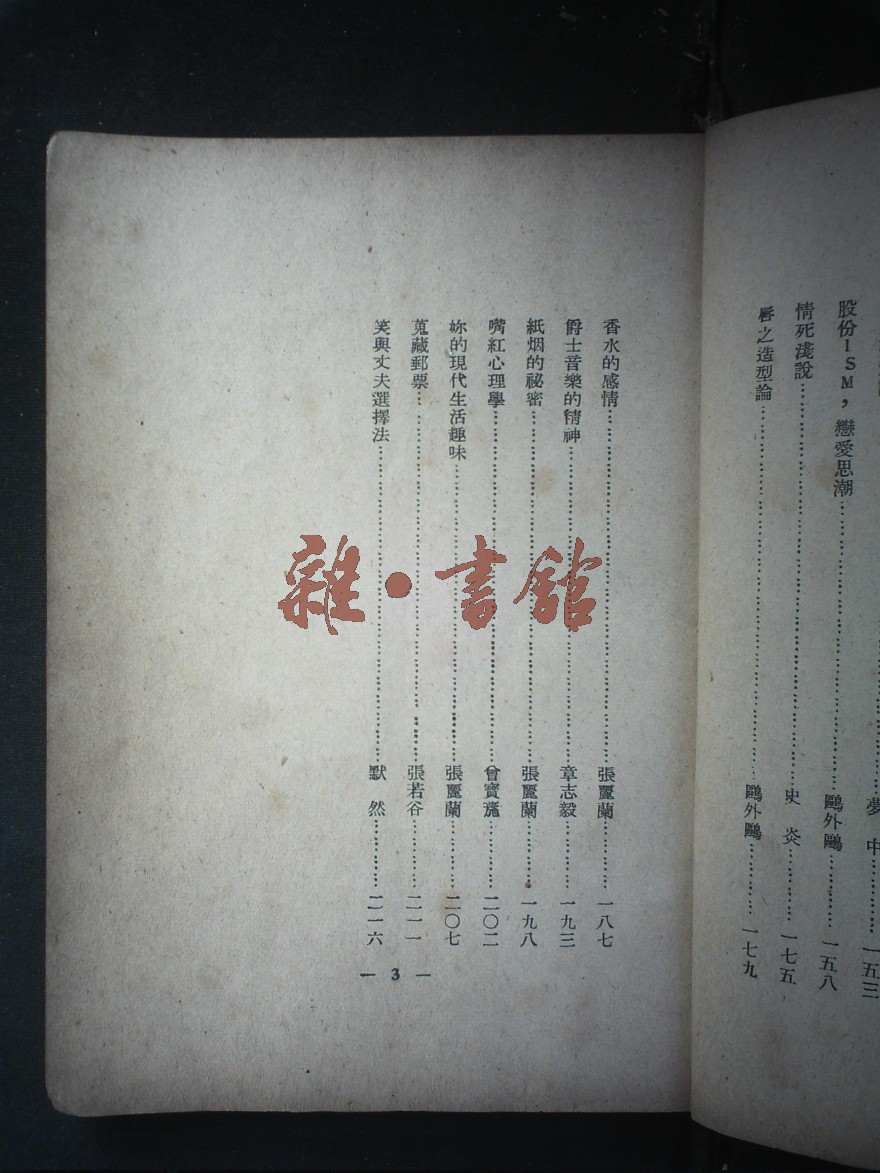 夢中……一五三
股份ISM，戀愛思潮……鷗外鷗……一五八
情死淺說……史炎……一七五
唇之造型論……鷗外鷗……一七九
香水的感情……張麗蘭……一八七
爵士音樂的精神……章志毅……一九三
紙烟的祕密……張麗蘭……一九八
嘴紅心理學……曾寶……二〇二
妳的現代生活趣味……張麗蘭……二〇七
蒐藏郵票……張若谷……二一一
笑與丈夫選擇法……默然……二一六
— 3 —
雜·書館